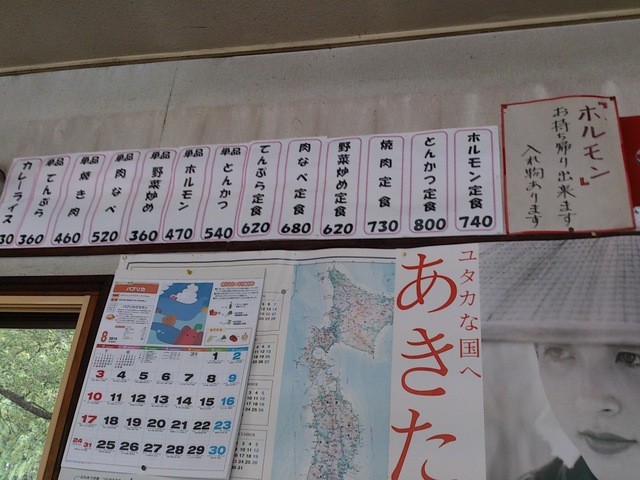 『ホルモン』
お持ち帰り出来ます
入れ物あります
ホルモン定食 740
とんかつ定食 800
焼肉定食 730
野菜炒め定食 620
肉なべ定食 680
てんぷら定食 620
単品 とんかつ 540
単品 ホルモン 470
単品 野菜炒め 360
単品 肉なべ 520
単品 焼き肉 460
単品 てんぷら 360
カレーライス 30
ユタカな国へ
あきた
パプリカ
8
1 2
3 4 5 6 7 8 9
10 11 12 13 14 15 16
17 18 19 20 21 22 23
24 31 25 26 27 28 29 30